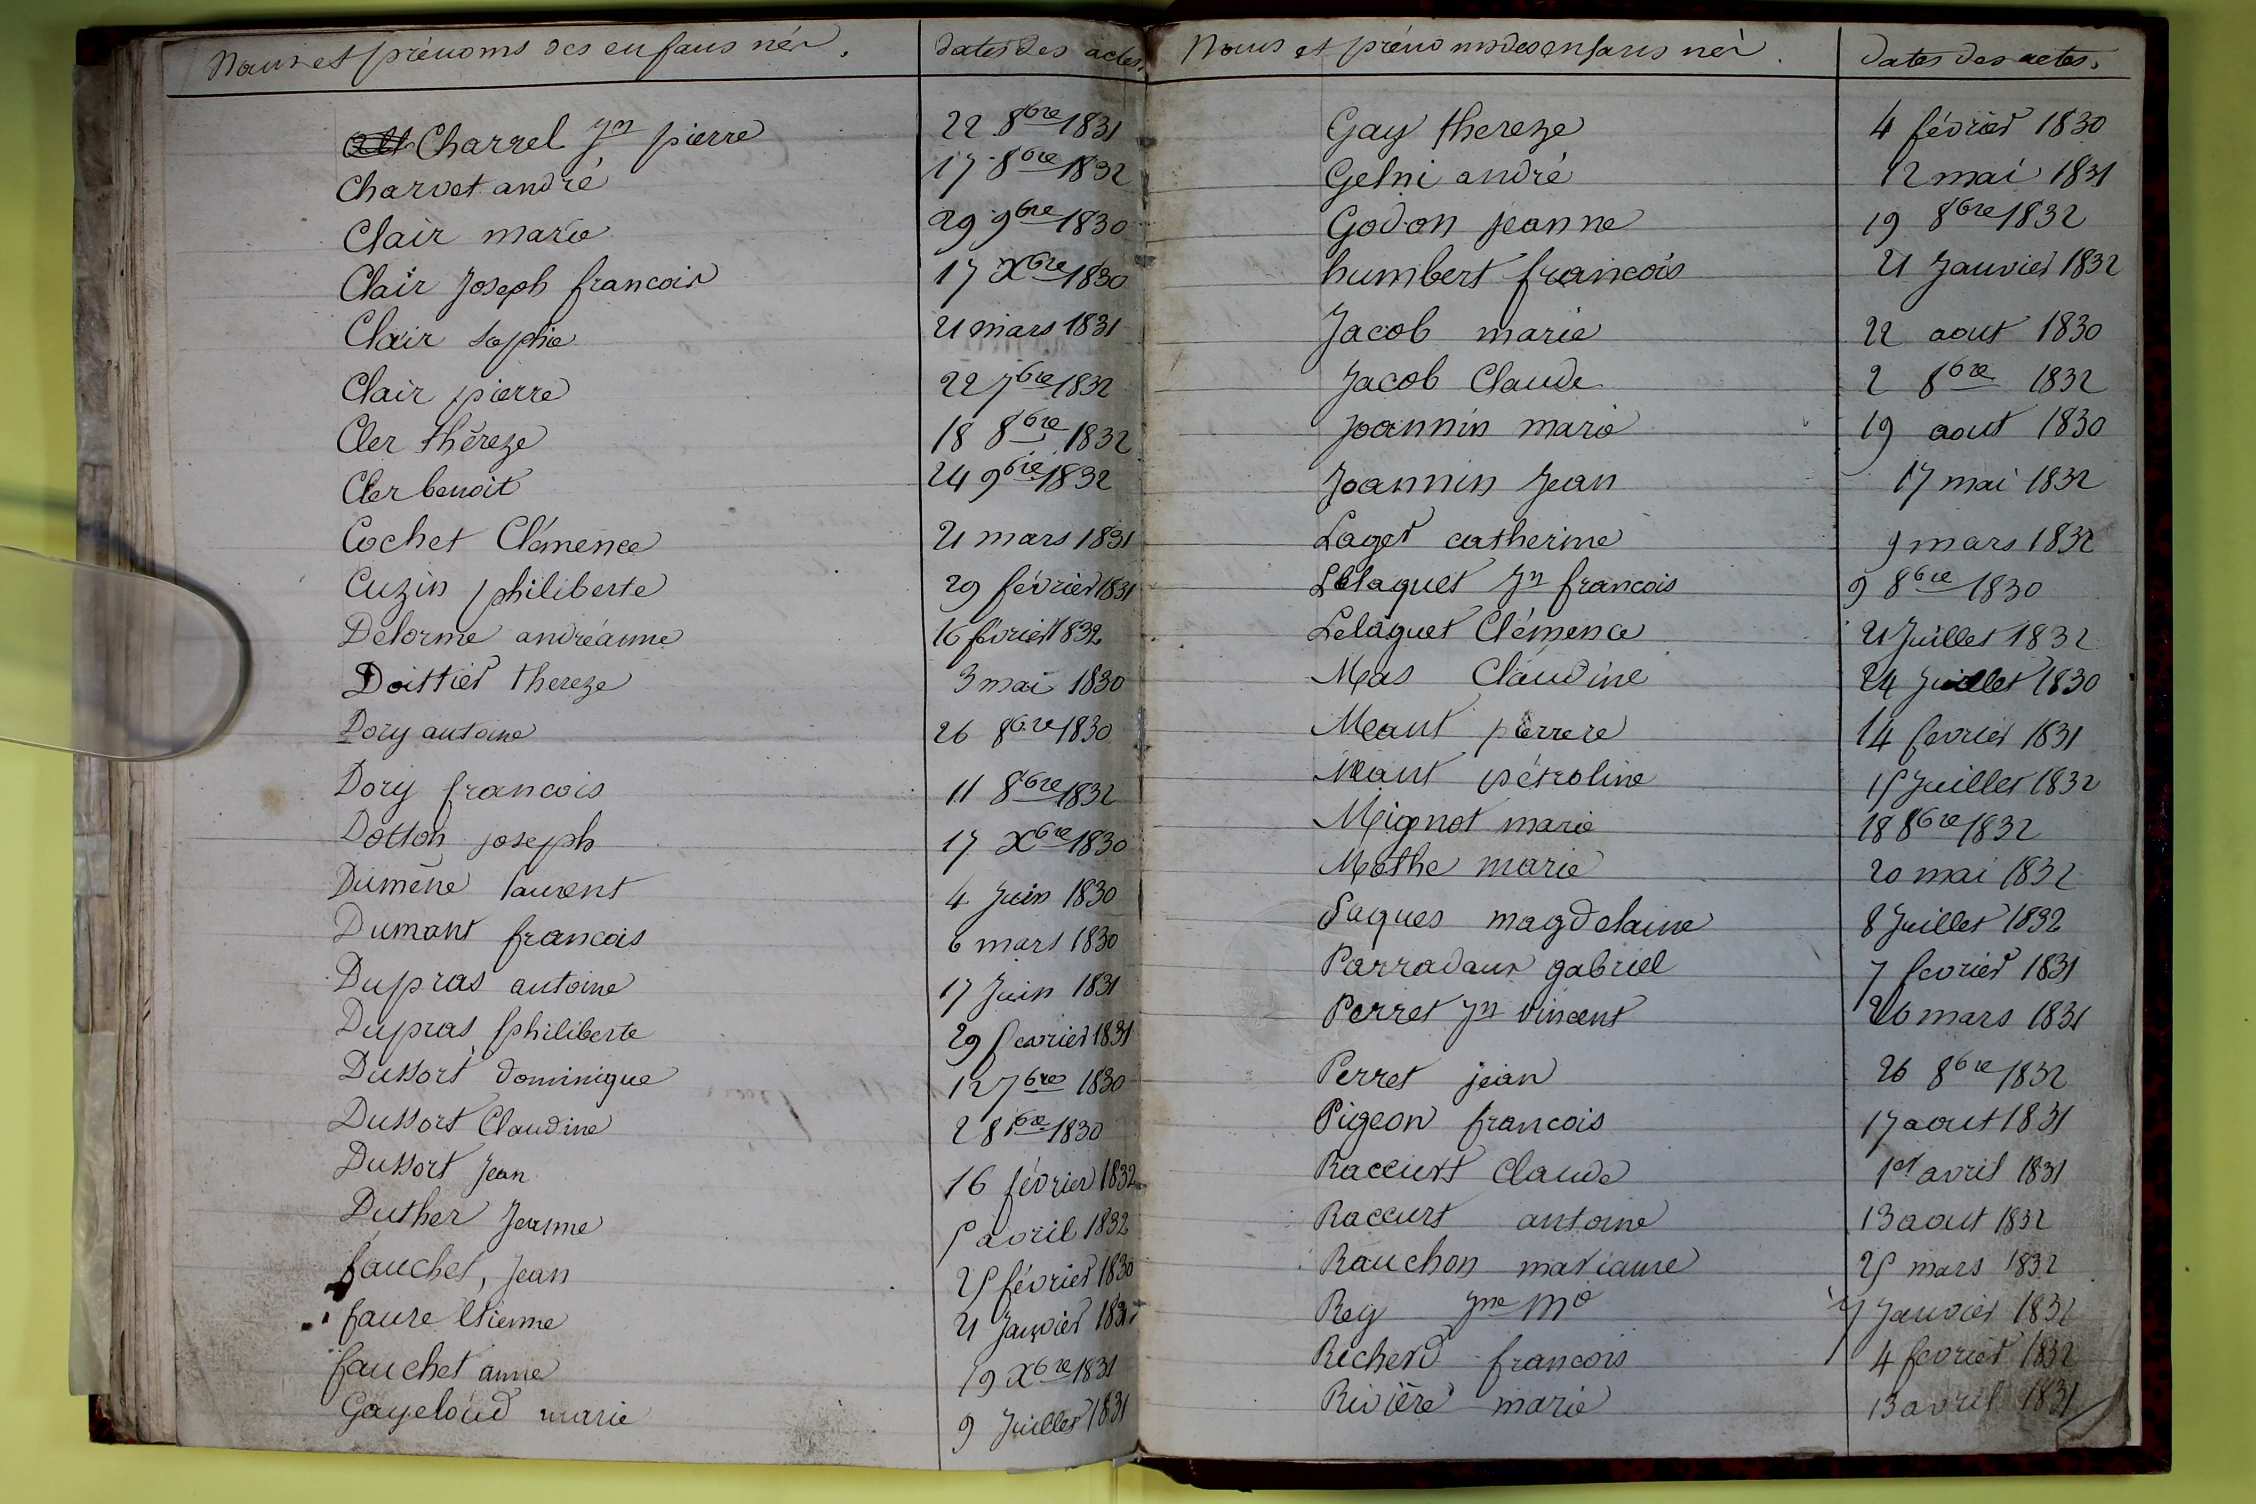 Noms et prénoms des enfans nés. dates des actes.
Charrel Jn pierre 22 8bre 1831
Charvet andré 17 8bre 1832
Clair marie 29 9bre 1830
Clair Joseph francois 17 Xbre 1830
Clair sophie 21 mars 1831
Clair pierre 22 7bre 1832
Cler thėreze 18 8bre 1832
Cler benoit 24 9bre 1832
Cochet Clémence 21 mars 1831
Cuzin philiberte 29 février 1831
Delorme andréanne 16 février 1832
Doittier thereze 3 mai 1830
Dory antoine 26 8bre 1830
Dory francois 11 8bre 1832
Dotton joseph 17 Xbre 1830
Dumene laurent 4 Juin 1830
Dumont francois 6 mars 1830
Dupras antoine 17 Juin 1831
Dupras philiberte 29 fevrier 1831
Dussort dominique 12 7bre 1830
Dussort Claudine 2 8bre 1830
Dussort Jean 16 février 1832
Duther Jeanne 5 avril 1832
fauchet, Jean 25 février 1830
faure etienne 21 Janvier
fauchet anne 19 Xbre 1831
Gayeloud marie 9 Juillet 1831
Noms et prénoms des enfans nés. dates des actes.
Gay thereze 4 février 1830
Gelni andré 12 mai 1831
Godon jeanne 19 8bre 1832
humbert francois 21 Janvier 1832
Jacob marie 22 aout 1830
Jacob Claude 2 8bre 1832
Joannin marie 19 aout 1830
Joannin Jean 17 mai 1832
Laget catherine 9 mars 1832
Lelaquet Jn francois 9 8bre 1830
Lelaquet Clémence 21 Juillet 1832
Mas Claudine 24 Juillet 1830
Meant pierrere 14 fevrier 1831
Meant pétroline 15 Juillet 1832
Mignot marie 18 8bre 1832
Mothe marie 20 mai 1832
Paques magdelaine 8 Juillet 1832
Parradaux gabriel 7 fevrier 1831
Perret Jn vincent 26 mars 1831
Perret jean 26 8bre 1832
Pigeon francois 17 aout 1831
Raccurt Claude 1er avril 1831
Raccurt antoine 13 aout 1832
Rauchon marianne 25 mars 1832
Rey Jne Mie Janvier 1832
Richerd francois 4 fevrier 1832
Rivière marie 13 avril 1831